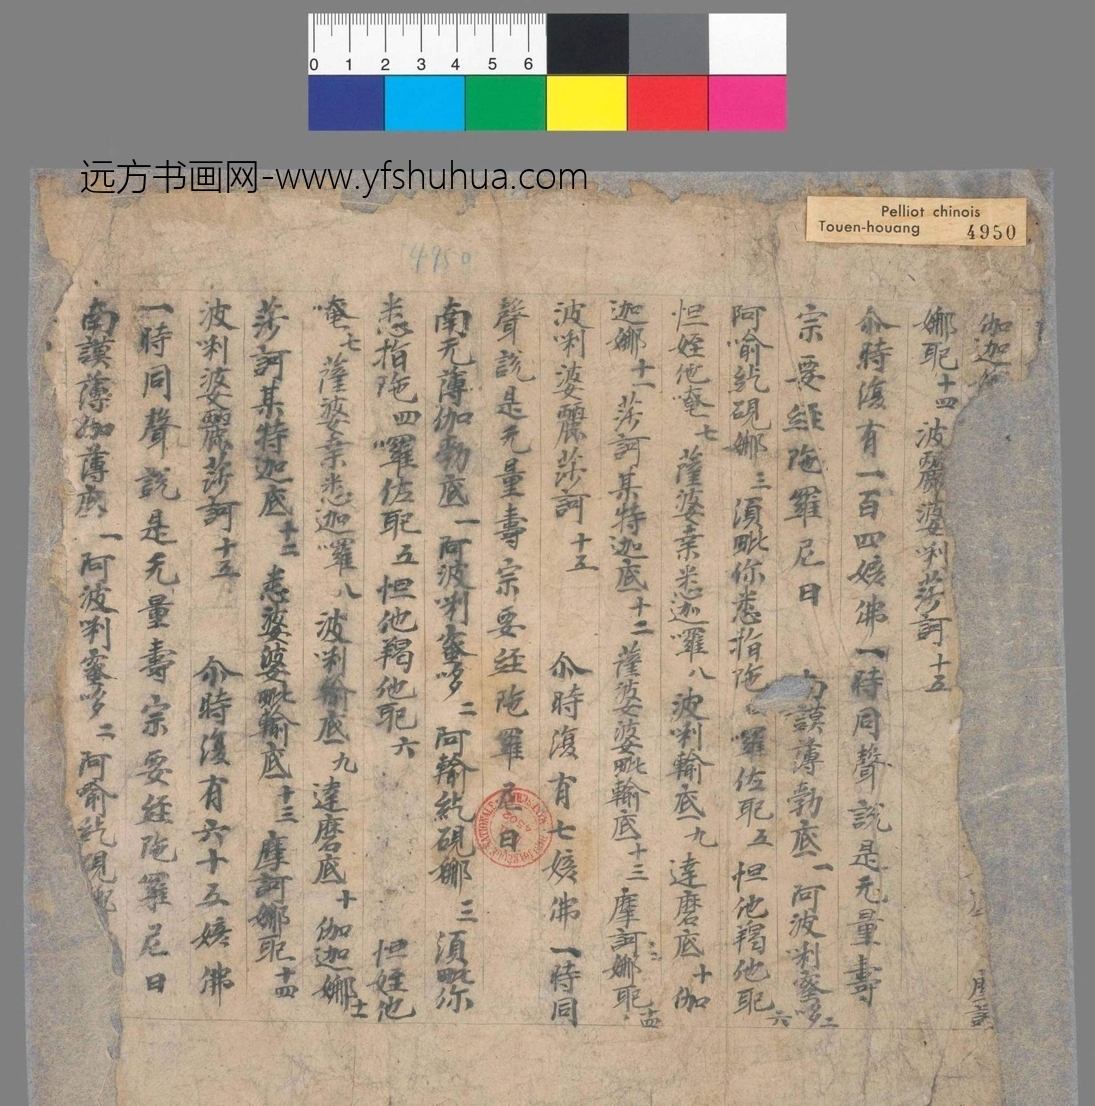 0 1 2 3 4 5 6
远方书画网-www.yfshuhua.com
Pelliot chinois
Touen-houang 4950
4950
伽迦 摩訶
娜耶十四波麗婆唎莎訶十五
尒時復有一百四姟佛一時同聲說是无量壽
宗要經陁羅尼曰 謨薄勃底一阿波唎蜜哆二
阿喻紇硯娜三須毗你悉指陁 囉佐耶五怛他羯他耶六
怛姪他唵七薩婆桒悉迦囉八波唎輸底九達磨底十伽
迦娜十一莎訶某特迦底十二薩婆婆毗輸底十三摩訶娜耶十四
波唎婆麗莎訶十五 尒時復有七姟佛一時同
聲說是无量壽宗要經陁羅尼曰
南无薄伽勃底一阿波唎蜜哆二阿輸紇硯娜三須毗你
悉指陁四囉佐耶五怛他羯他耶六 怛姪他
唵七薩婆桒悉迦囉八波唎輸底九達磨底十伽迦娜十一
莎訶某特迦底十二悉婆婆毗輸底十三摩訶娜耶十四
波唎婆麗莎訶十五 尒時復有六十五姟佛
一時同聲說是无量壽宗要經陁羅尼曰
南謨薄伽薄底一阿波唎蜜哆二阿喻紇硯